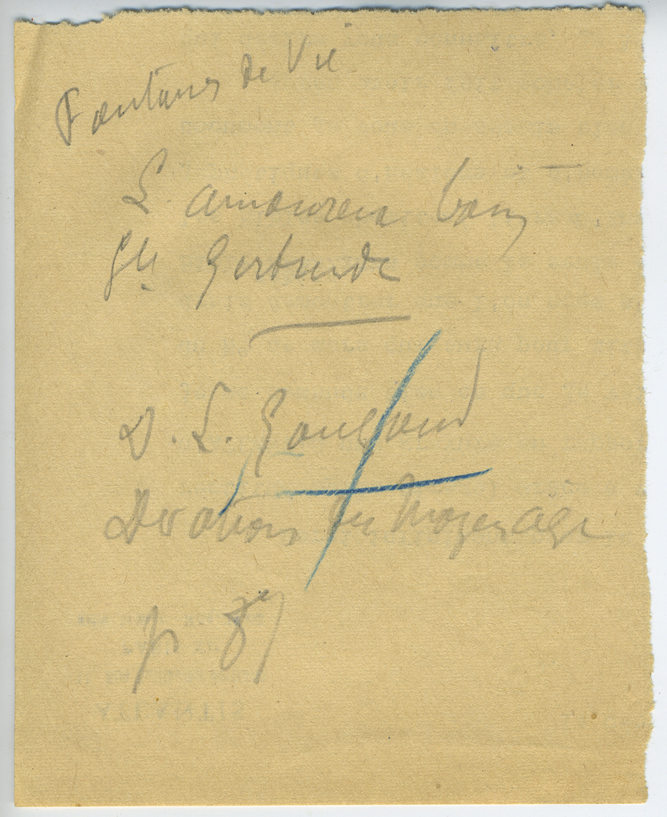 Fontaines de Vie
L'amoureux bain
Ste Gertrude
D. L. Gougaud
Dévotions du Moyen age
p 87